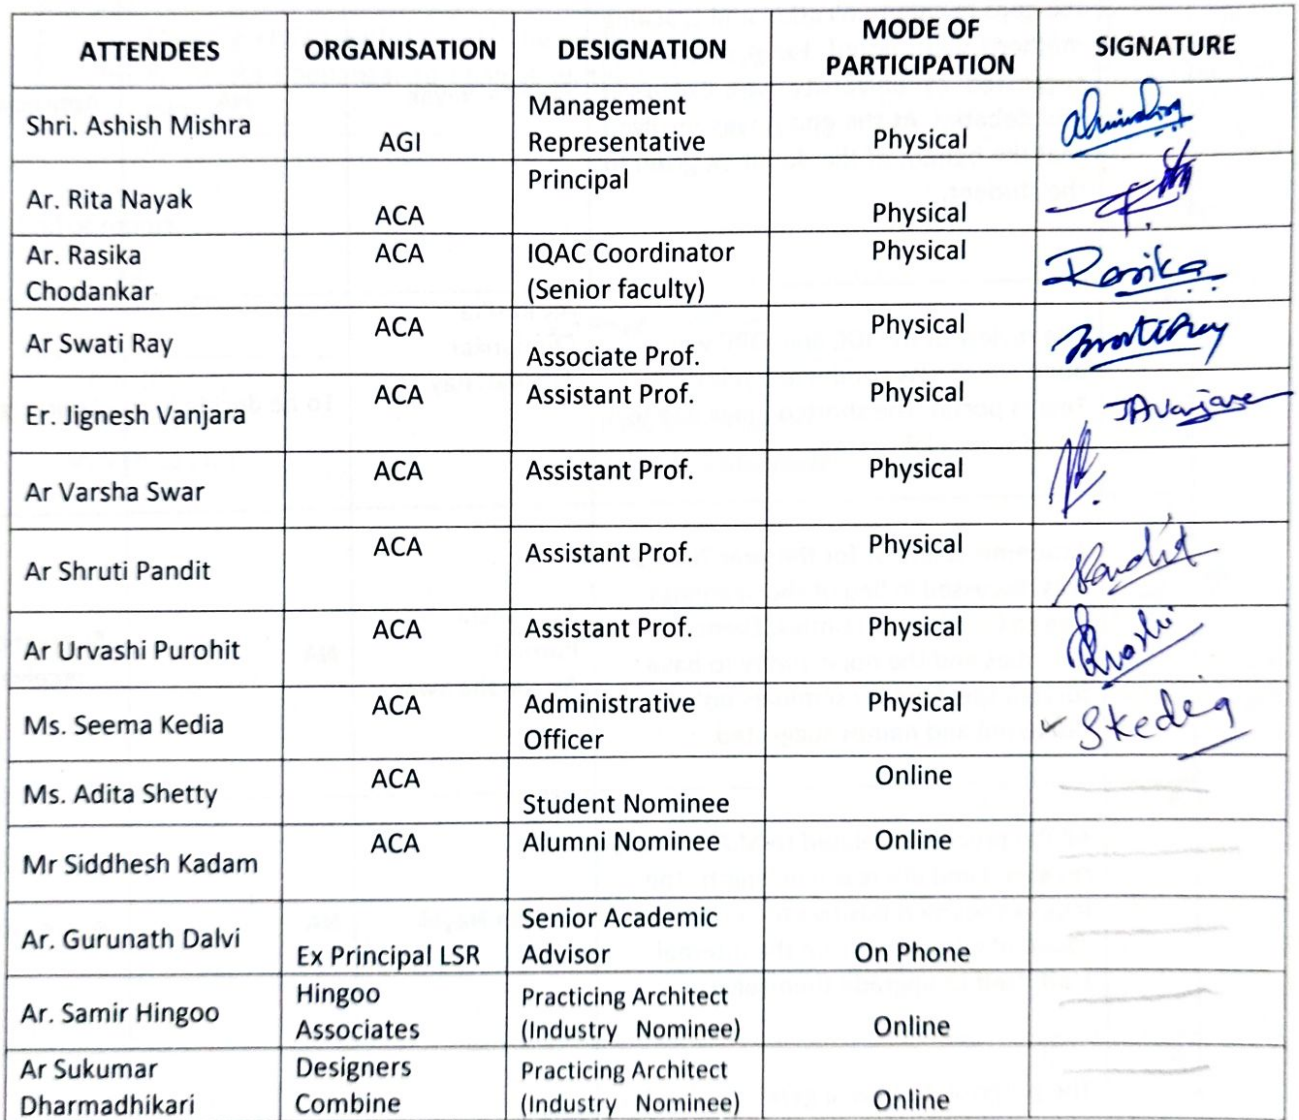 ATTENDEES ORGANISATION DESIGNATION MODE OF PARTICIPATION SIGNATURE
Shri. Ashish Mishra AGI Management Representative Physical
Ar. Rita Nayak ACA Principal Physical
Ar. Rasika Chodankar ACA IQAC Coordinator (Senior faculty) Physical Rasika
Ar Swati Ray ACA Associate Prof. Physical
Er. Jignesh Vanjara ACA Assistant Prof. Physical
Ar Varsha Swar ACA Assistant Prof. Physical
Ar Shruti Pandit ACA Assistant Prof. Physical
Ar Urvashi Purohit ACA Assistant Prof. Physical
Ms. Seema Kedia ACA Administrative Officer Physical Skedia
Ms. Adita Shetty ACA Student Nominee Online
Mr Siddhesh Kadam ACA Alumni Nominee Online
Ar. Gurunath Dalvi Ex Principal LSR Senior Academic Advisor On Phone
Ar. Samir Hingoo Hingoo Associates Practicing Architect (Industry Nominee) Online
Ar Sukumar Dharmadhikari Designers Combine Practicing Architect (Industry Nominee) Online